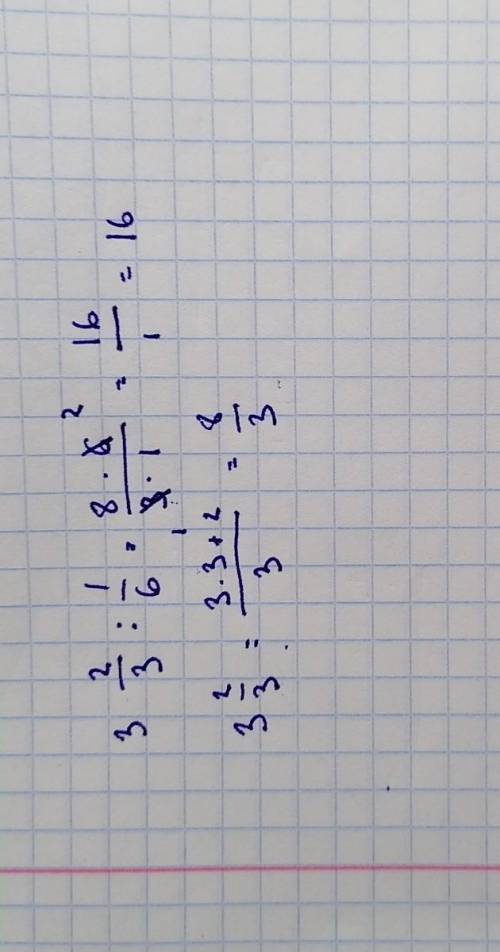 3 2/3 : 1/6 = 8·6 2/3·1 1 = 16/1 = 16
3 2/3 = 3·3+2/3 = 8/3